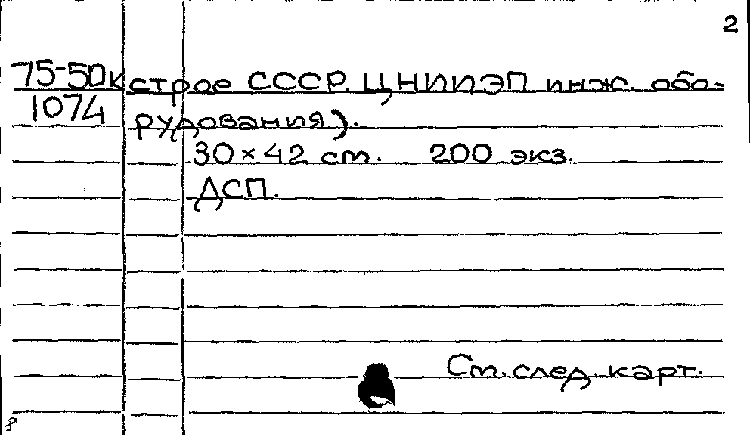 2
75-50к строе СССР. ЦНИИЭП инж. обо-
1074 рудования).
30×42 см. 200 экз.
ДСП.
См. след. карт.